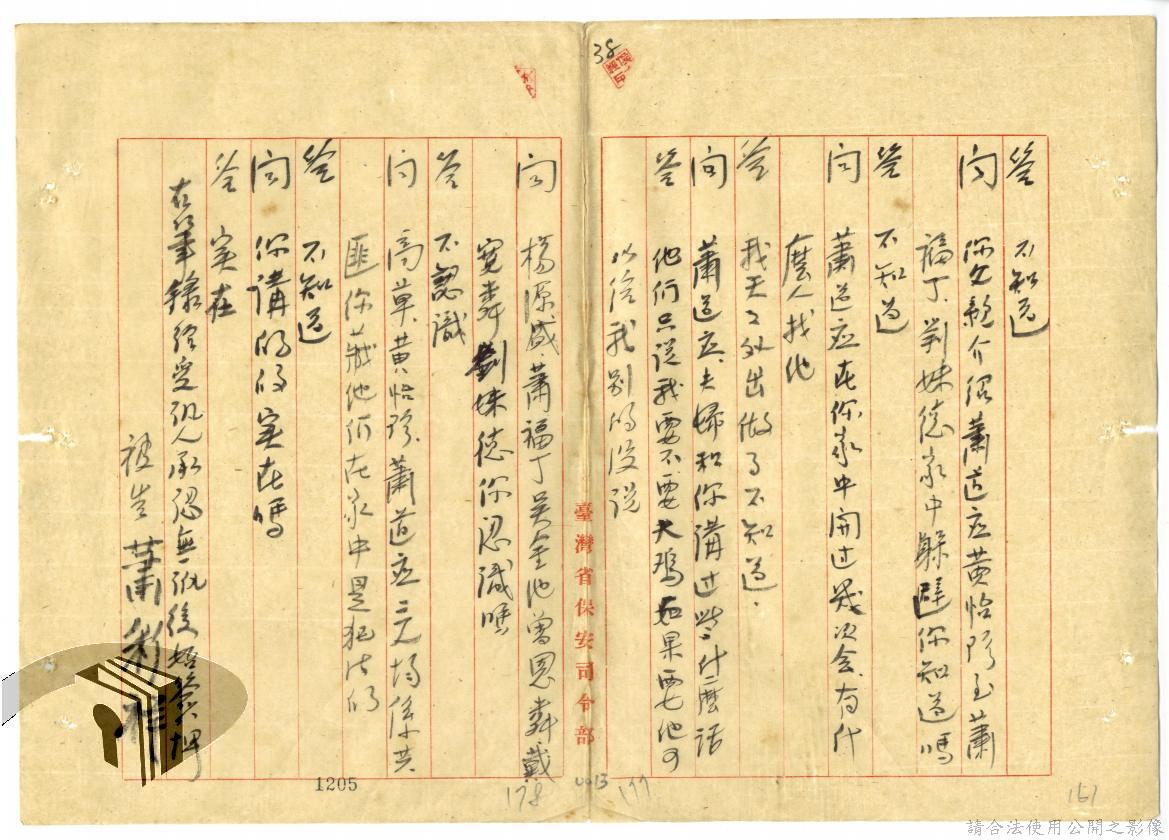 38
答　不知道
问　你父親介紹蕭道应黄怡珍至蕭
福丁、劉妹德家中躲避你知道嗎
答　不知道
问　蕭道应在你家中開过幾次会、有什
麽人找他
答　我天天外出做工不知道．
问　蕭道应、夫婦和你講过些什麽話
答　他们只说我要不要大鸡如果要他可
以给我别的没说
臺灣省保安司令部
问　楊源盛、蕭福丁吳金池曾恩彝戴
寬彝劉妹德你認識嗎
答　不認識
问　高草、黄怡珍、蕭道应立場係共
匪你藏他们在家中是犯法的
答　不知道
问　你講的的实在嗎
答　实在
右筆錄經受訊人承認無訛後始簽押
被告　蕭彩祥
1205
0013
178
177
161
請合法使用公開之影像